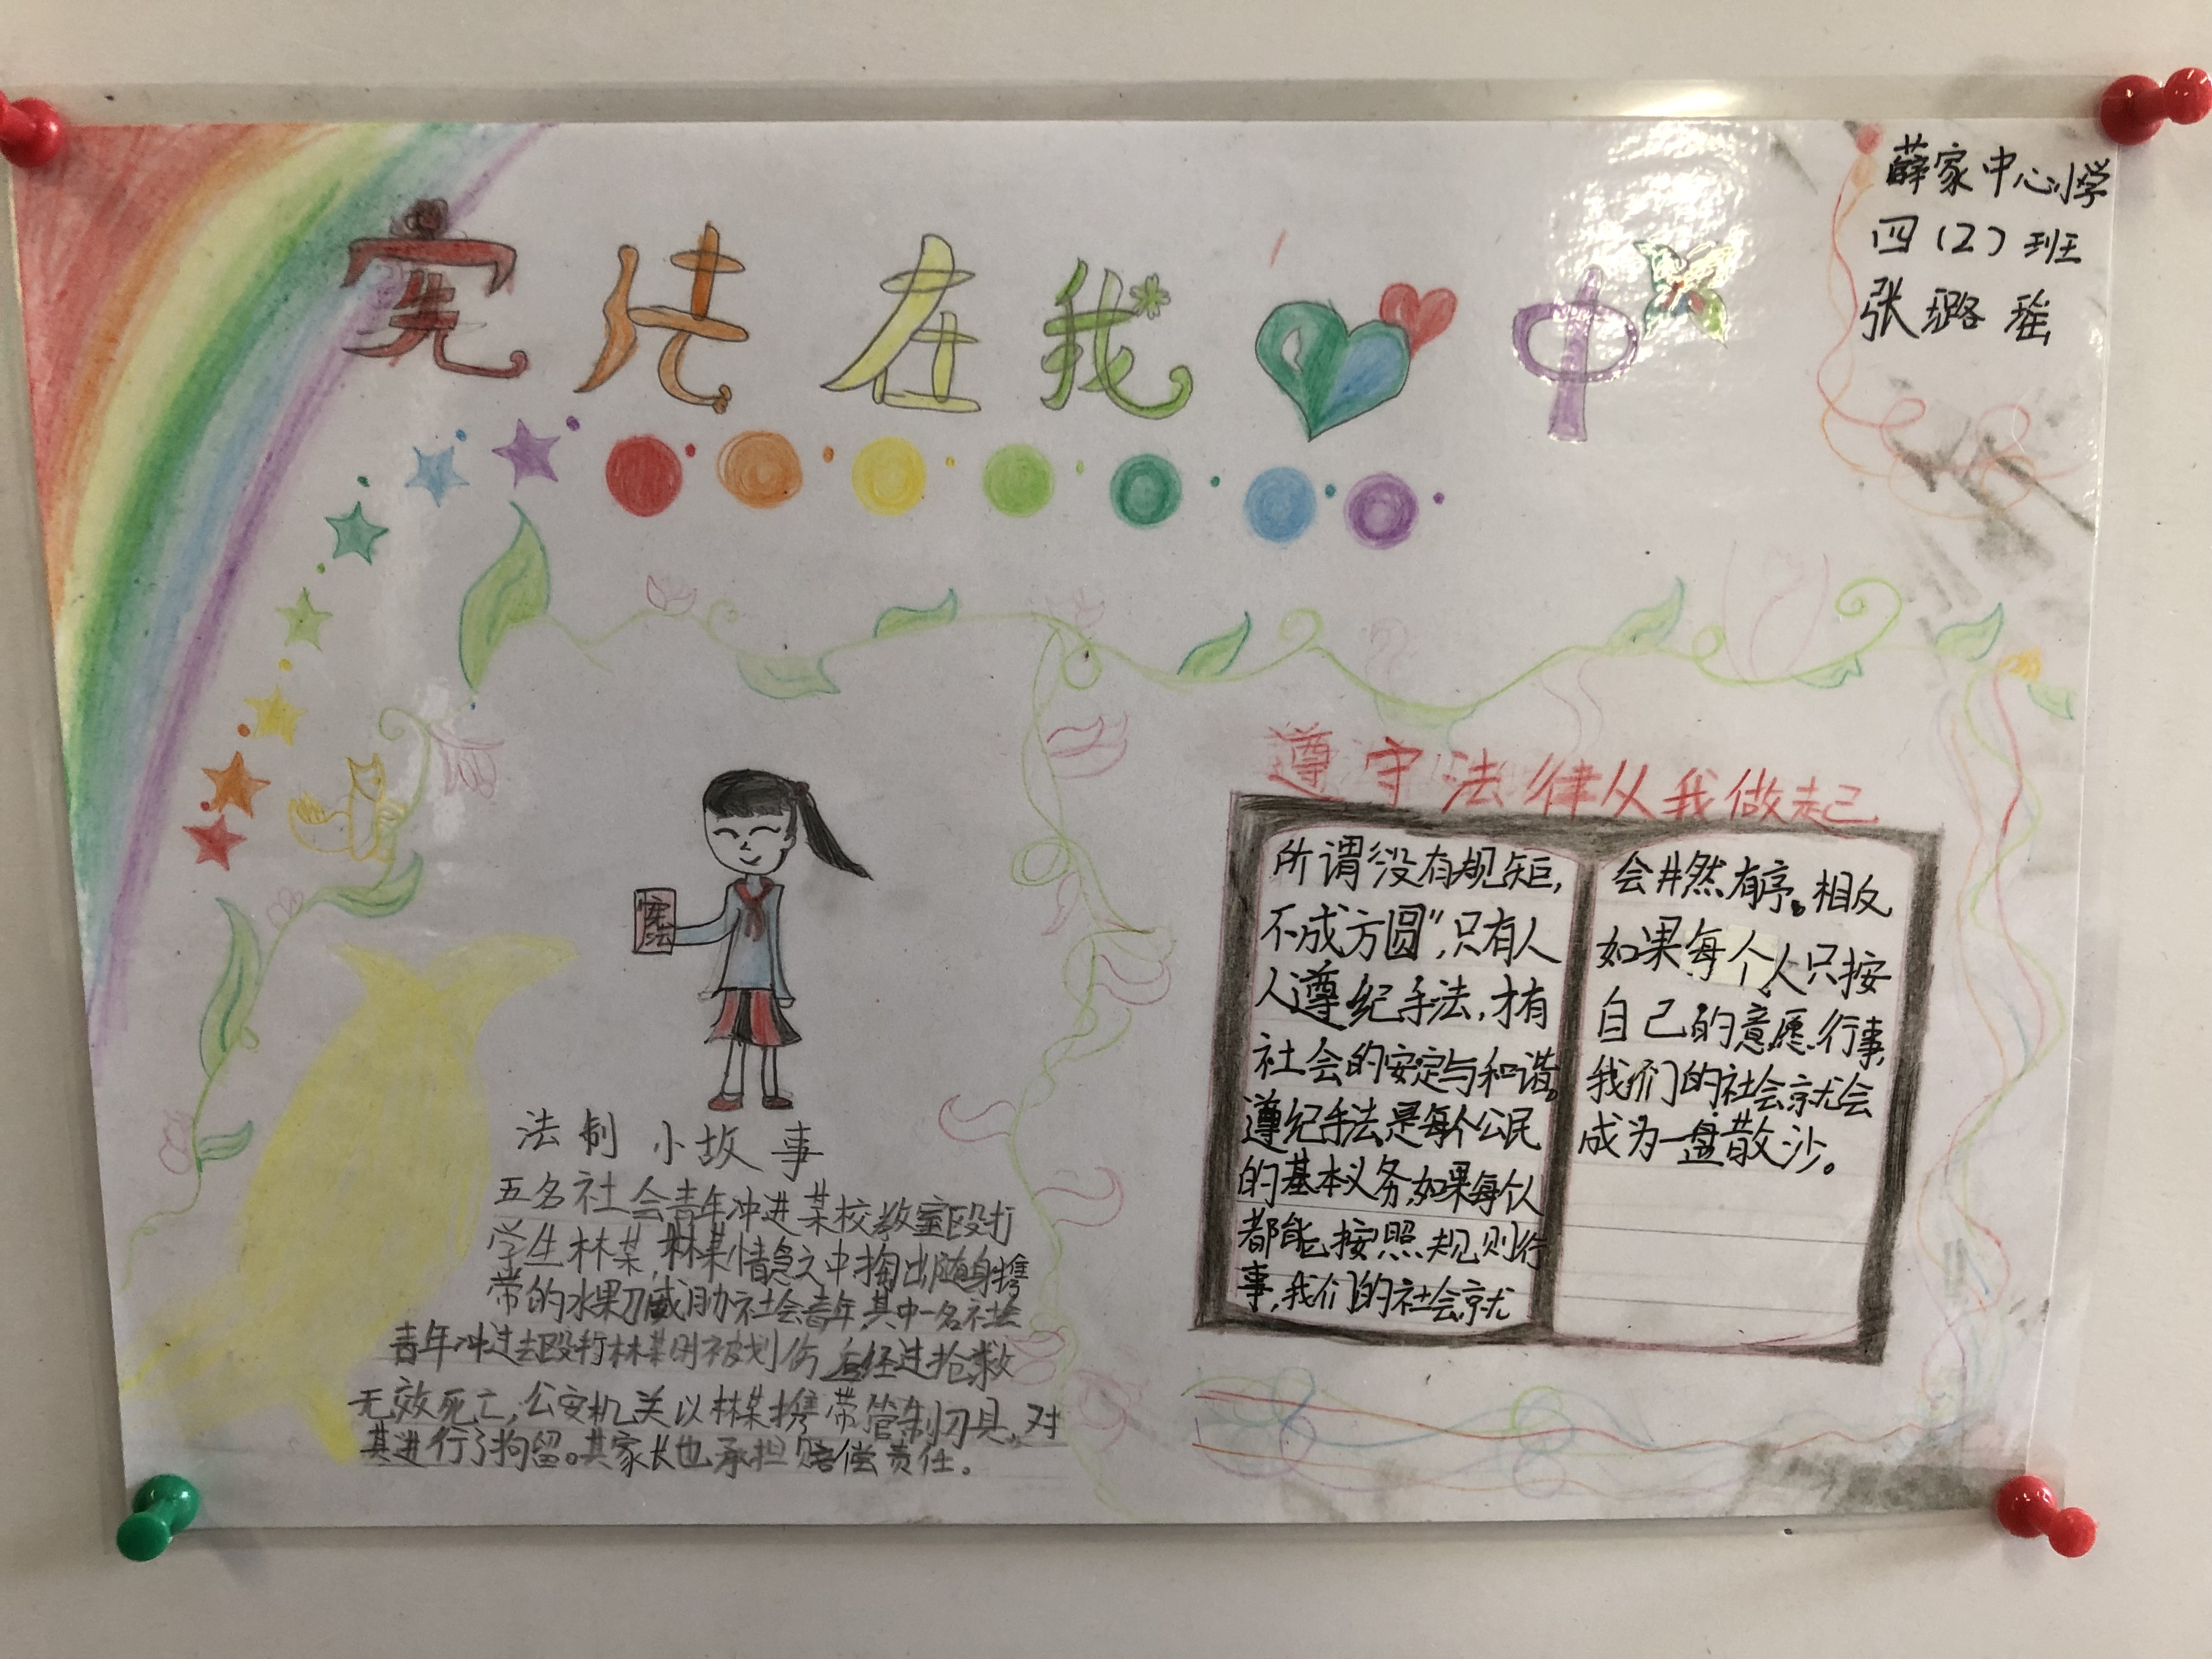 宪法在我中
薛家中心小学
四(2)班
张璐瑶
宪法
法制小故事
五名社会青年冲进某校教室殴打
学生林某,林某情急之中掏出随身携
带的水果刀威胁社会青年,其中一名社会
青年冲过去殴打林某时被划伤,后经过抢救
无效死亡,公安机关以林某携带管制刀具,对
其进行了拘留。其家长也承担赔偿责任。
遵守法律从我做起
所谓“没有规矩,
不成方圆”,只有人
人遵纪手法,才有
社会的安定与和谐。
遵纪手法是每个公民
的基本义务,如果每个人
都能按照规则行
事,我们的社会就
会井然有序。相反
如果每个人只按
自己的意愿行事,
我们的社会就会
成为一盘散沙。